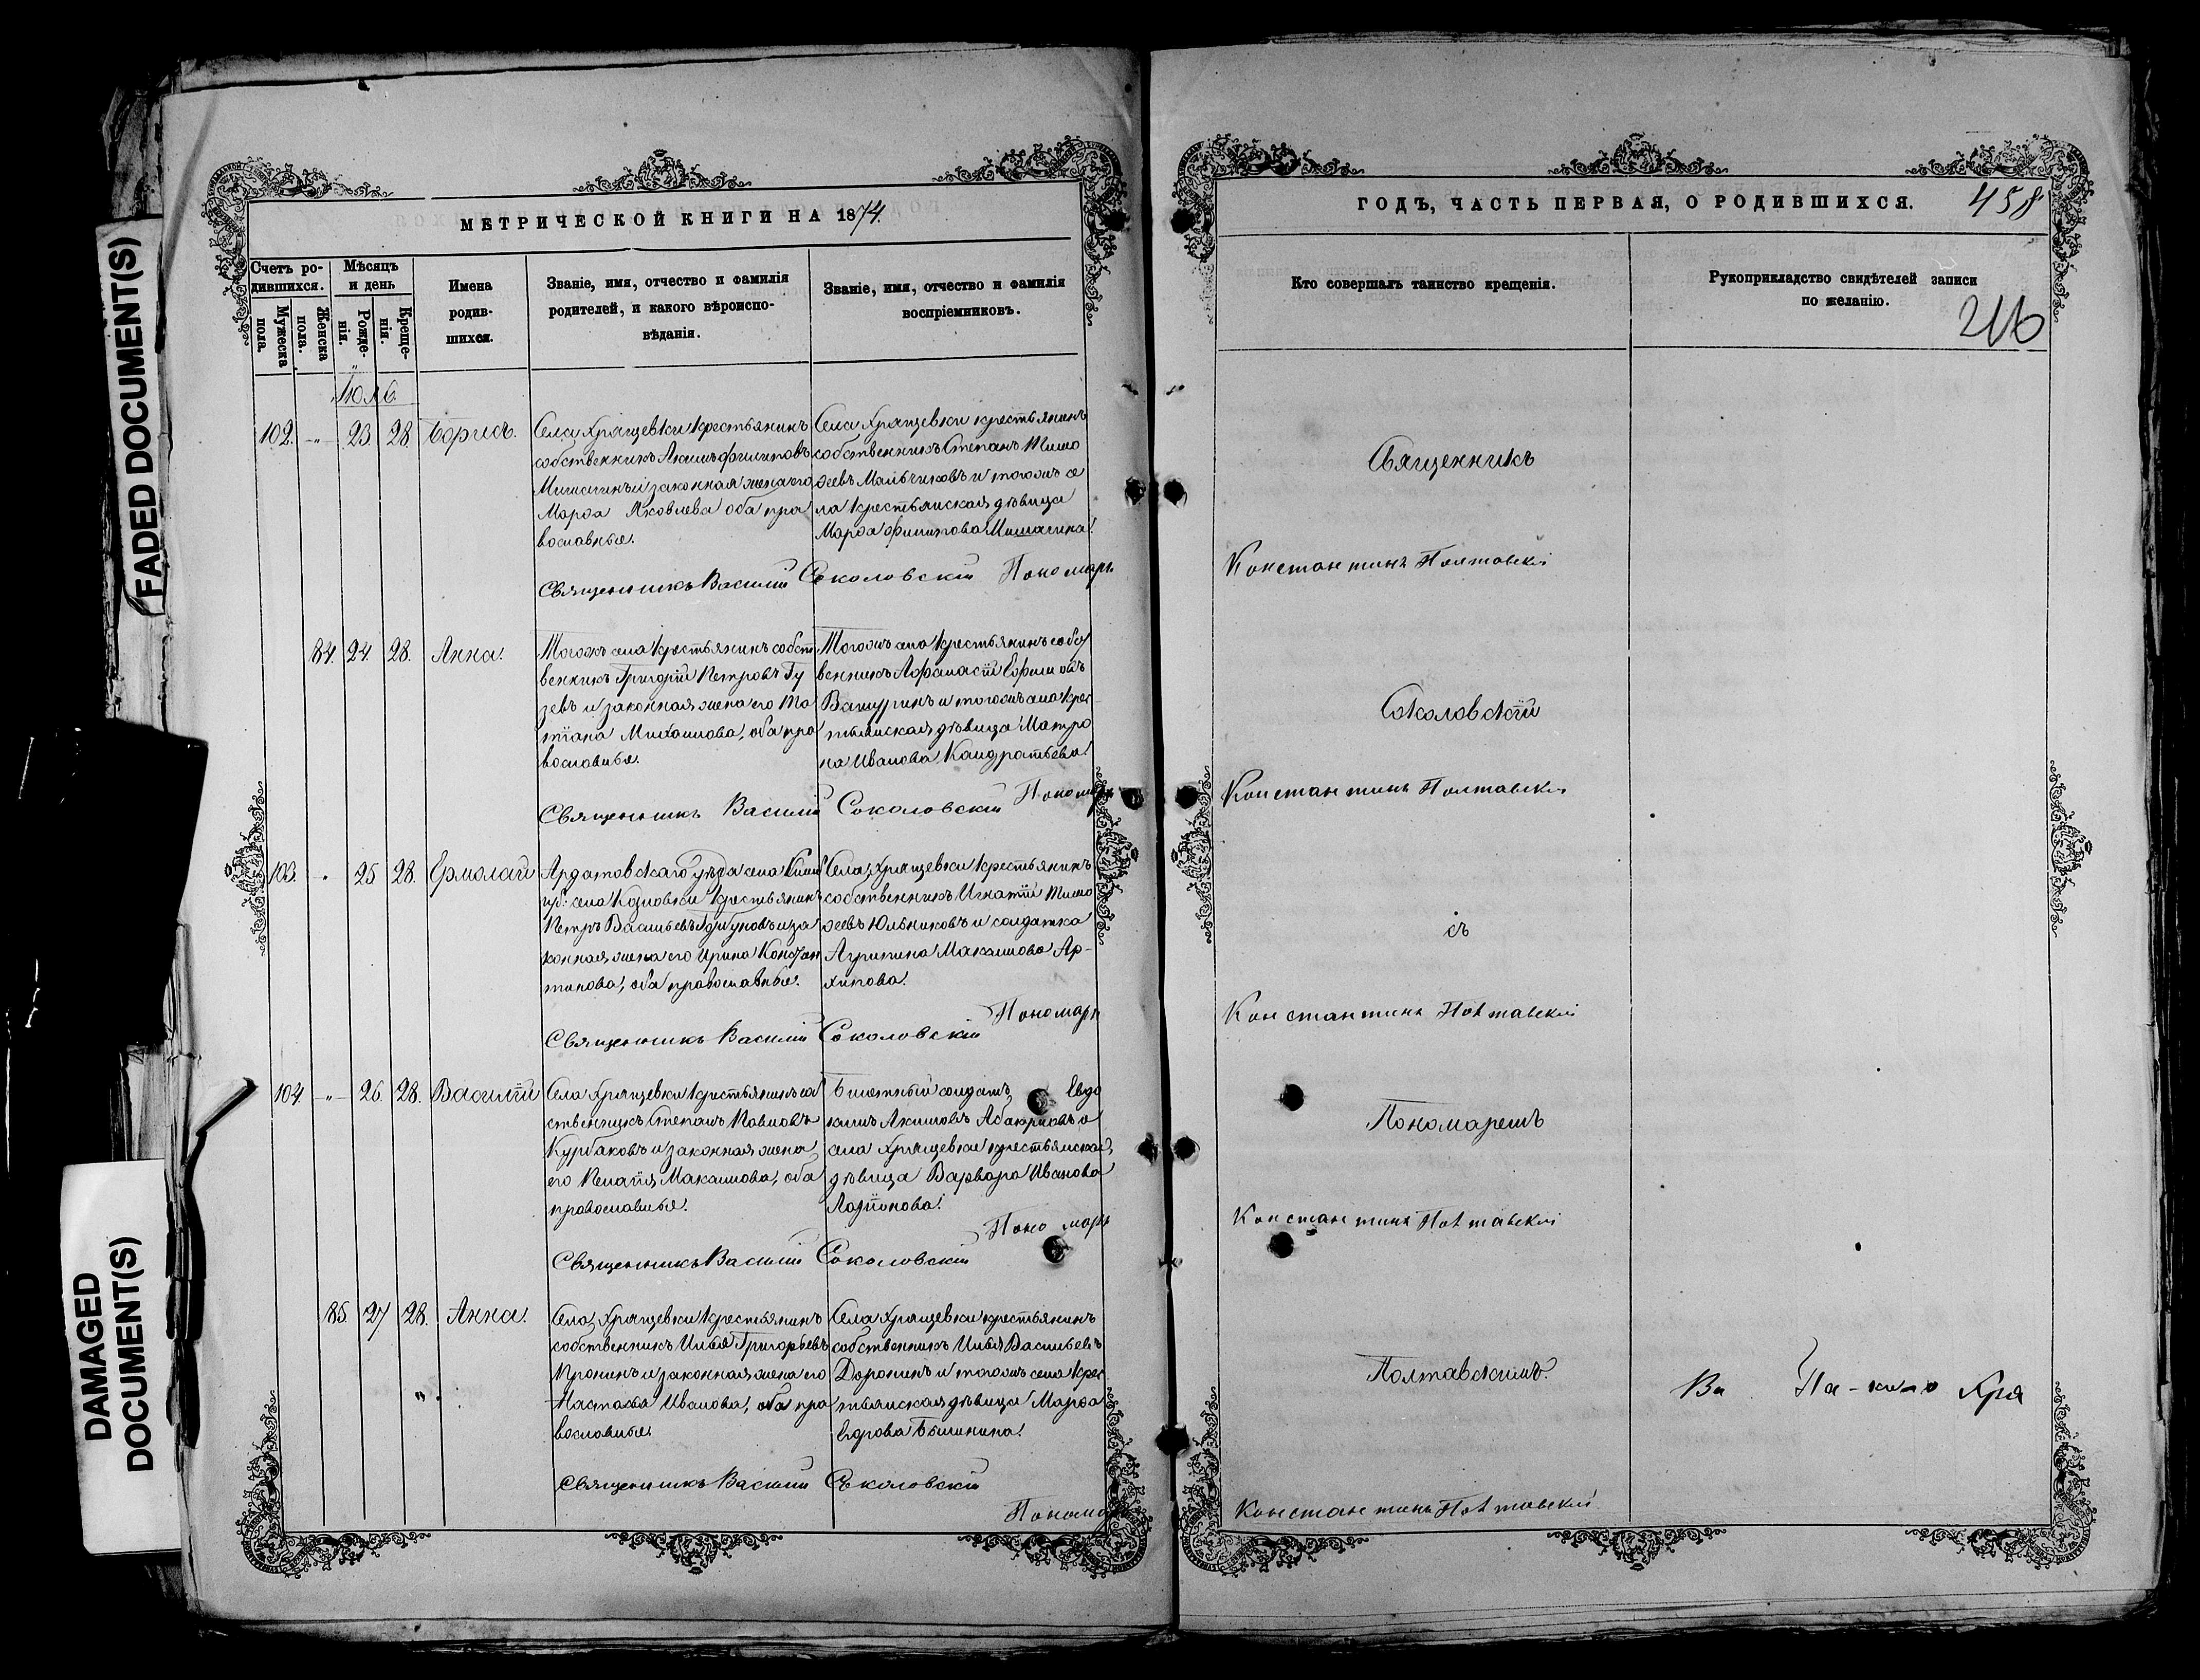 FADED DOCUMENT(S)
DAMAGED
DOCUMENT(S)
МЕТРИЧЕСКОЙ КНИГИ НА 1874.
Счетъ ро-
дившихся.
Мужеска
пола.
Женска
пола.
Мѣсяцъ
и день
Рожде-
нія.
Креще-
нія.
Имена
родив-
шихся.
Званіе, имя, отчество и фамилія
родителей, и какого вѣроиспо-
вѣданія.
Званіе, имя, отчество и фамилія
воспріемниковъ.
Юль
102. -"- 23 28 Борисъ.
Села Хрящевки крестьянинъ
собственникъ Акимъ Филиповъ
Мишагинъ и законная жена его
Марѳа Яковлева оба пра
вославные.
Села Хрящевки крестьянинъ
собственникъ Степанъ Тимо
ѳеевъ Мальчиковъ и тогожъ се
ла крестьянская дѣвица
Марѳа Филипова Мишагина.
Священникъ Василій Соколовскій Пономарь
84. 24. 28. Анна.
Тогожъ села крестьянинъ собст
венникъ Григорій Петровъ Гу
зевъ и законная жена его Та
тіана Михаилова, оба пра
вославные.
Тогожъ села крестьянинъ собст
венникъ Афанасій Ефимовъ
и тогожъ села крес
тьянская дѣвица Матро
на Иванова Кандратьева.
Священникъ Василій Соколовскій Пономарь
103. 25 28. Ермолай
Ардатовскаго уѣзда села
губ. села Козловки крестьянинъ
Петръ Васильевъ и за
конная жена его Ирина Констан
тинова, оба православные.
Села Хрящевки крестьянинъ
собственникъ Игнатій Тимо
ѳеевъ Юльниковъ и солдатка
Агрипина Максимова Ар-
хипова.
Священникъ Василій Соколовскій Пономарь
104 -"- 26. 28. Василій
Села Хрящевки крестьянинъ соб
ственникъ Степанъ Павловъ
Курбаковъ и законная жена
его Пелагія Максимова, оба
православные.
Билетный солдатъ Евдо
кимъ Акимовъ и
села Хрящевки крестьянская
дѣвица Варвара Иванова
Ларіонова.
Священникъ Василій Соколовскій Пономарь
85. 27 28. Анна.
Села Хрящевки крестьянинъ
собственникъ Илья Григорьевъ
Пронинъ и законная жена его
Настасья Иванова, оба пра
вославные.
Села Хрящевки крестьянинъ
собственникъ Илья Васильевъ
Доронинъ и тогожъ села крес
тьянская дѣвица Марѳа
Егорова
Священникъ Василій Соколовскій
Пономарь
ГОДЪ, ЧАСТЬ ПЕРВАЯ, О РОДИВШИХСЯ.
458
Кто совершалъ таинство крещенія.
Рукоприкладство свидѣтелей записи
по желанію.
216
Священникъ
Константинъ Полтавскій
Соколовскій
Константинъ Полтавскій
съ
Константинъ Полтавскій
Пономаремъ
Константинъ Полтавскій
Полтавскимъ.
Константинъ Полтавскій